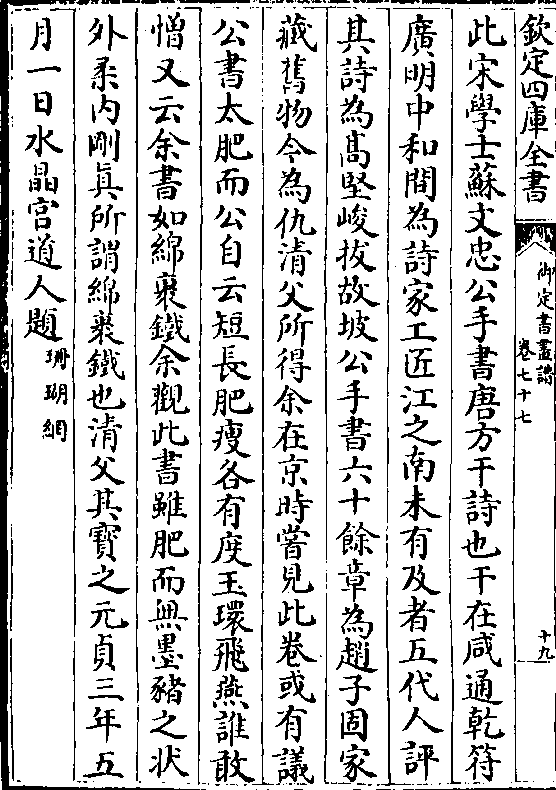 欽定四庫全書
御定書畫譜
卷七十七
十九
此宋學士蘇文忠公手書唐方干詩也干在咸通乾符
廣明中和間為詩家工匠江之南未有及者五代人評
其詩為髙堅峻拔故坡公手書六十餘章為趙子固家
藏舊物今為仇清父所得余在京時嘗見此卷或有議
公書太肥而公自云短長肥瘦各有度玉環飛燕誰敢
憎又云余書如綿裹鐵余觀此書雖肥而無墨豬之状
外柔内剛眞所謂綿裹鐵也清父其寳之元貞三年五
月一日水晶宫道人題
珊瑚網